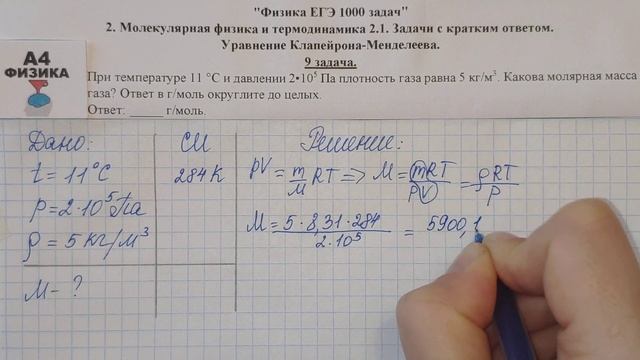 "Физика ЕГЭ 1000 задач"
2. Молекулярная физика и термодинамика 2.1. Задачи с кратким ответом.
Уравнение Клапейрона-Менделеева.
9 задача.
А4
ФИЗИКА
При температуре 11 °С и давлении 2•10⁵ Па плотность газа равна 5 кг/м³. Какова молярная масса
газа? Ответ в г/моль округлите до целых.
Ответ: _____ г/моль.
Дано: СИ Решение:
t = 11°C 284 К pV = m/M RT => M = mRT/pV = ρRT/p
p = 2·10⁵ Па
ρ = 5 кг/м³ M = 5·8,31·284/2·10⁵ = 5900,1
M - ?